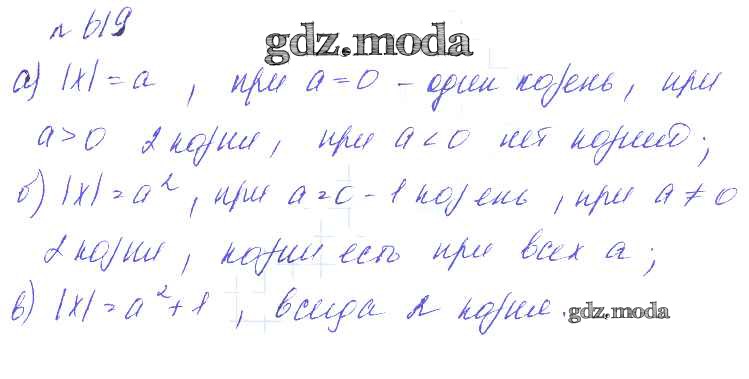 № 619
gdz.moda
а) |x| = a, при a = 0 – один корень, при
a > 0 2 корни, при a < 0 нет корней;
б) |x| = a², при a = 0 – 1 корень, при a ≠ 0
2 корни, корни есть при всех a;
в) |x| = a² + 1, всегда 2 корни.
gdz.moda